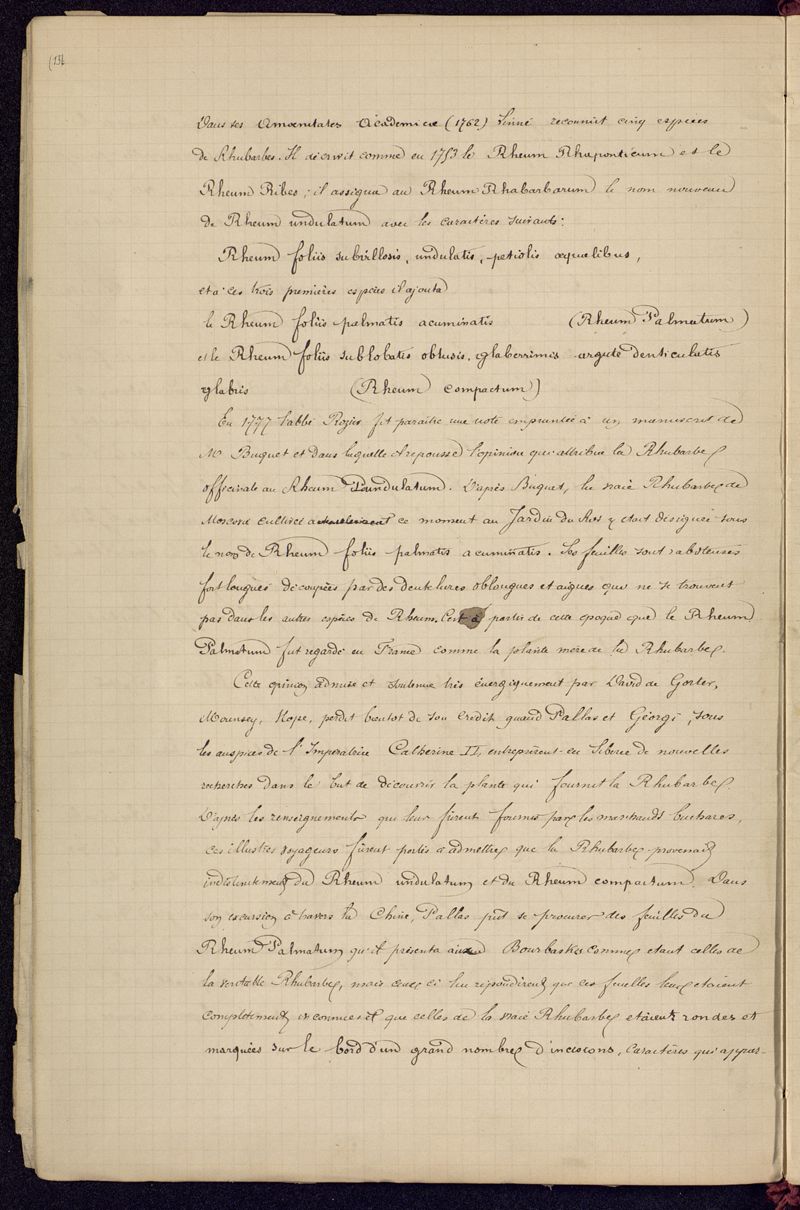 (131
Dans ses Amoenitates Academicæ (1762) Linné reconnut cinq espèces
de Rhubarbes. Il décrivit comme en 1753 le Rheum Rhaponticum et le
Rheum Ribes ; il assigna au Rheum Rhabarbarum le nom nouveau
de Rheum undulatum avec les caractères suivants :
Rheum foliis subvillosis, undulatis, petiolis æqualibus,
et à ces trois premières espèces il ajouta
le Rheum foliis palmatis acuminatis (Rheum Palmatum)
et le Rheum foliis sublobatis obtusis, glaberrimis argute denticulatis
glabris (Rheum compactum)
En 1777 l'abbé Rozier fit paraître une note empruntée à un manuscrit de
Mr Buquet et dans laquelle il repousse l'opinion qui attribue la Rhubarbe
officinale au Rheum undulatum. D'après Buquet, la vraie Rhubarbe de
Moscovie cultivée en ce moment au Jardin du Roi y était désignée sous
le nom de Rheum foliis palmatis acuminatis. Ses feuilles sont raboteuses
fort longues découpées par des dentelures oblongues et aigues qui ne se trouvent
pas dans les autres espèces de Rheum. C'est à partir de cette époque que le Rheum
Palmatum fut regardé en France comme la plante mère de la Rhubarbe.
Cette opinion admise et soutenue très énergiquement par David de Gorter,
Mounsey, Hope, perdit bientot de son crédit quand Pallas et Géorgi, sous
les auspices de l'Impératrice Catherine II, entreprirent en Siberie de nouvelles
recherches dans le but de découvrir la plante qui fournit la Rhubarbe.
D'après les renseignements qui leur furent fournis par les marchands buchares,
ces illustres voyageurs furent portés à admettre que la Rhubarbe provenait
indistinctement du Rheum undulatum et du Rheum compactum. Dans
son excursion à travers la Chine, Pallas put se procurer des feuilles du
Rheum Palmatum qu'il présenta aux Bourbaskes comme étant celles de
la véritable Rhubarbe, mais ceux ci lui répondirent que ces feuilles leur étaient
complètement inconnues et que celles de la vraie Rhubarbe etaient rondes et
marquées sur le bord d'un grand nombre d'incisions, caractères qui appar-